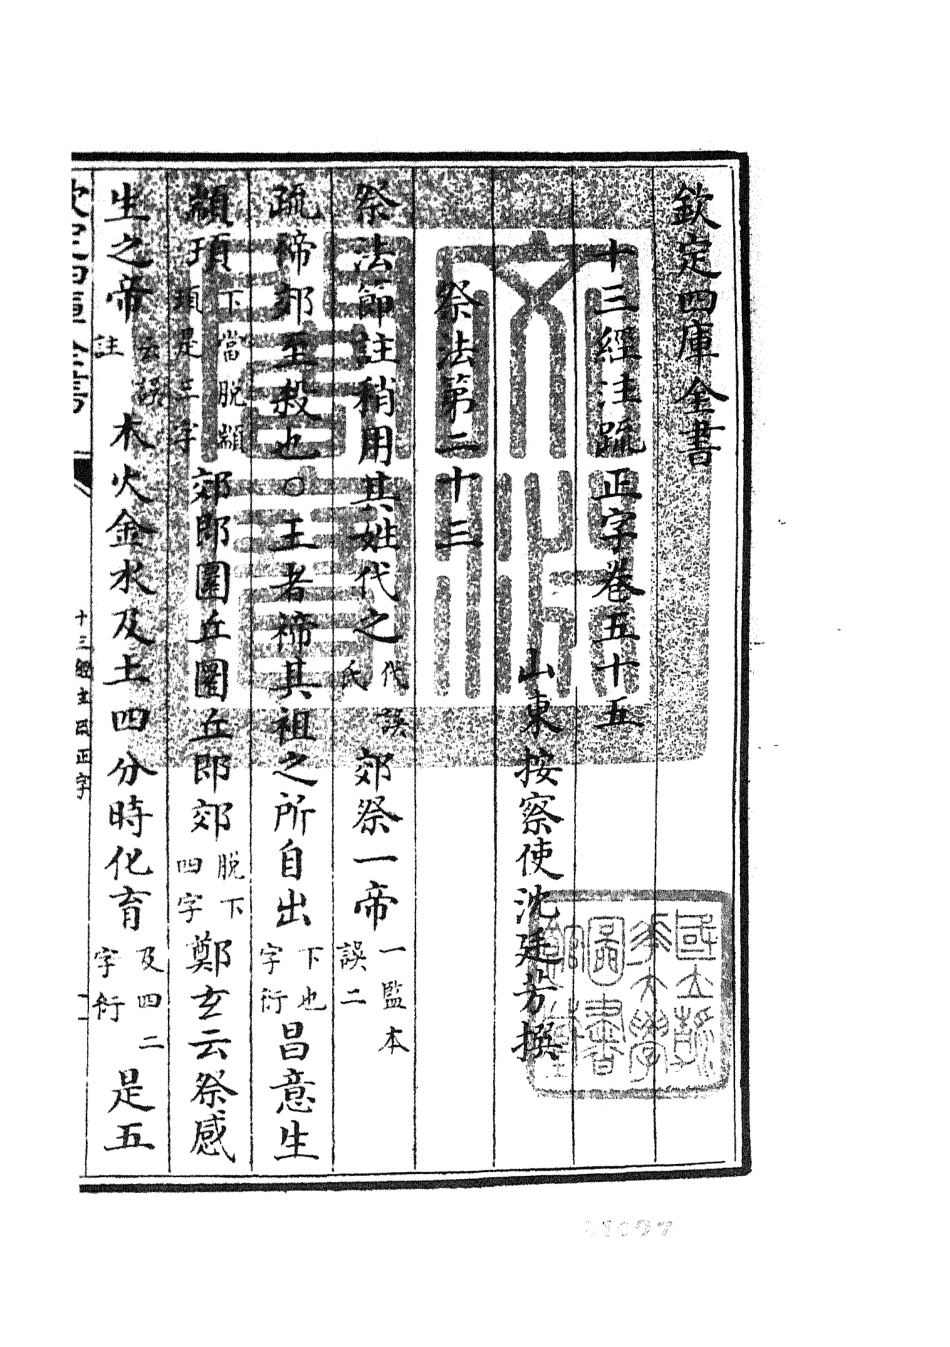 欽定四庫全書
十三經注疏正字卷五十五
山東按察使沈廷芳撰
祭法第二十三
祭法節註稍用其姓代之代誤氏郊祭一帝一監本誤二
疏禘郊至殺也○王者禘其祖之所自出下也字衍昌意生
顓頊下當脫顓頊是三字郊郎圜丘圜丘即郊脫下四字鄭玄云祭感
生之帝云誤註木火金水及土四分時化育及四二字衍是五
欽定四庫全書
十三經注疏正字
一